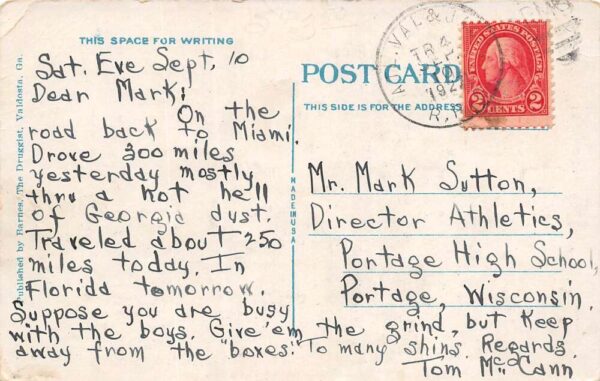 THIS SPACE FOR WRITING
Sat. Eve Sept. 10
Dear Mark;
On the
road back to Miami.
Drove 300 miles
yesterday mostly
thru a hot hell
of Georgia dust.
Traveled about 250
miles today. In
Florida tomorrow.
Suppose you are busy
with the boys. Give 'em the grind, but keep
away from the "boxes." To many shins. Regards.
Tom McCann
Published by Barnes, The Druggist, Valdosta, Ga.
MADE IN USA
POST CARD
THIS SIDE IS FOR THE ADDRESS
VAL & J
TR 4
R.P.
UNITED STATES POSTAGE
2 CENTS 2
Mr. Mark Sutton,
Director Athletics,
Portage High School,
Portage, Wisconsin.